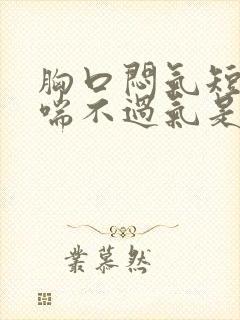 胸口悶氣短
喘不過氣是
業慕然